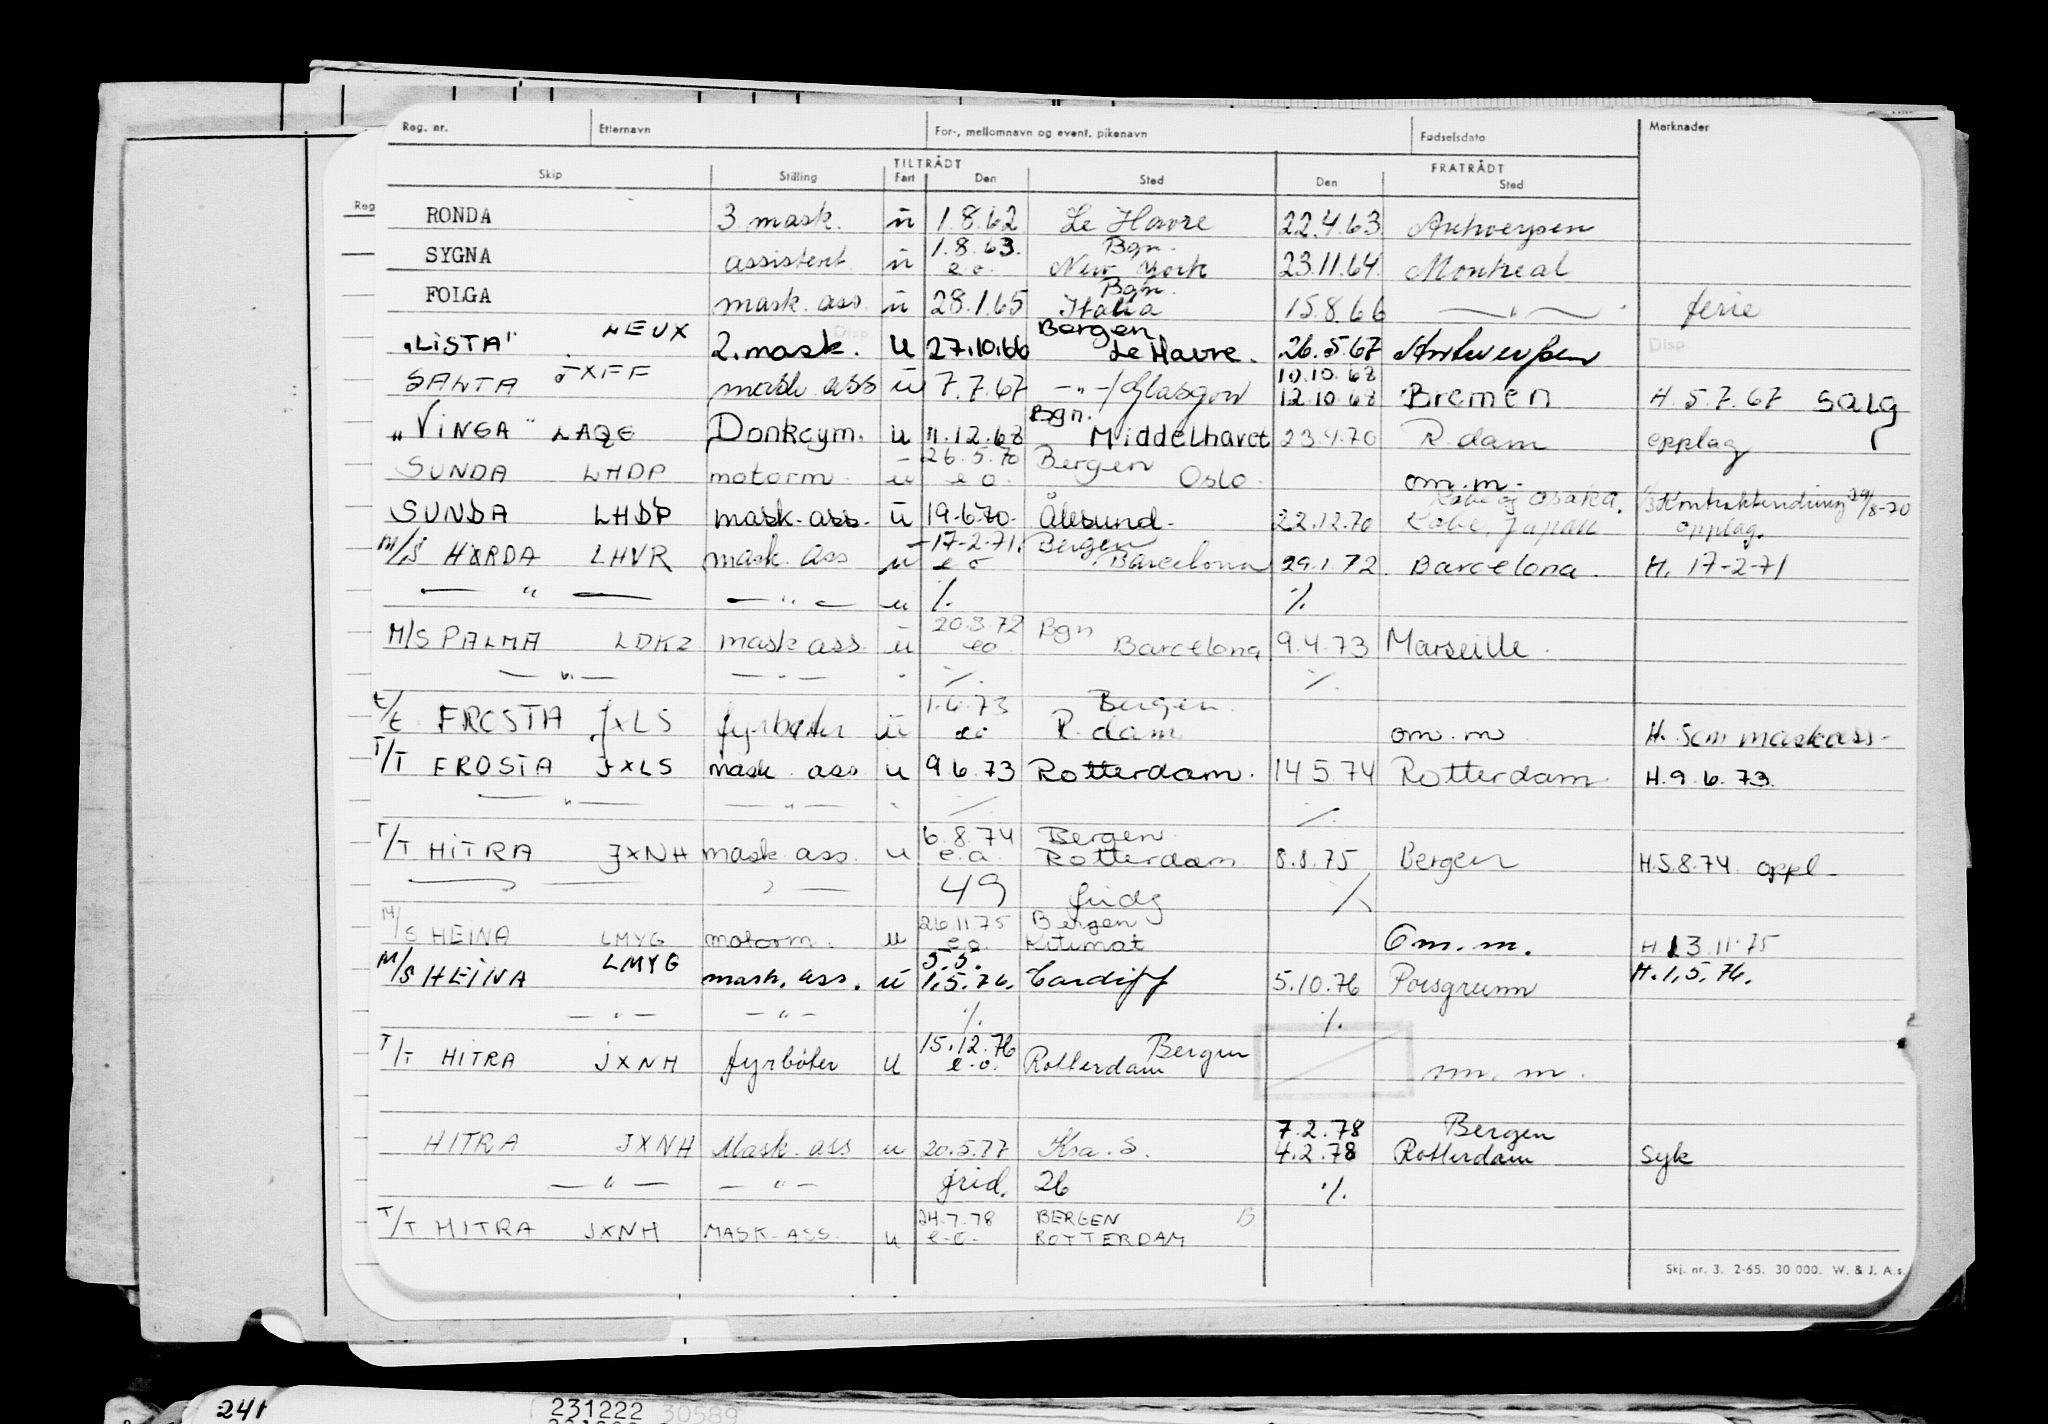 Reg. nr. Etternavn For-, mellomnavn og event. pikenavn Fødselsdato Merknader
TILTRÅDT FRATRÅDT
Skip Stilling Fart Den Sted Den Sted
Reg
RONDA 3 mask. u 1.8.62 Le Havre 22.4.63 Antwerpen
1.8.63. Bgn.
SYGNA assistent u e.o. New York 23.11.64. Montreal
Bgn.
FOLGA mask. ass. u 28.1.65 Italia 15.8.66 — " — ferie
Bergen
"LISTA" LEUX 2. mask. u 27.10.66 Le Havre. 26.5.67 Antwerpen
Disp.
10.10.68
SANTA JXFF mask ass u 7.7.67 -"-/Glasgow 12.10.68 Bremen H. 5.7.67 salg
Bgn.
"VINGA" LAQG Donkeym. u 11.12.68 Middelhavet 23.4.70 R.dam opplag
26.5.70 Bergen
SUNDA LHDP motorm. u e o. Oslo. om.m.
Kobe og Osaka.
SUNDA LHDP mask. ass. u 19.6.70. Ålesund. 22.12.70 Kobe, Japan Kontraktendring 29/8-70
opplag.
17-2-71. Bergen
M/S HORDA LHVR mask. ass u e o Barcelona 29.1.72. Barcelona. H. 17-2-71
— " — — " — u ./. ./.
20.3.72 Bgn
M/S PALMA LDKZ mask ass. u eo Barcelona 9.4.73 Marseille.
— " — — " — " ./. ./.
1.6.73 Bergen.
t/t FROSTA JXLS fyrbøter u eo R.dam om.m. H. som maskass-
T/T FROSTA JXLS mask. ass u 9.6.73 Rotterdam. 14.5.74 Rotterdam. H. 9.6.73.
— " — — " — " ./. ./.
6.8.74 Bergen
T/T HITRA JXNH mask. ass. u e.o. Rotterdam 8.8.75 Bergen H.5.8.74. oppl-
— " — 49 fridg ./.
26.11.75 Bergen
M/S HEINA LMYG motorm. u e.o. Kitimat Om.m. H. 13.11.75
5.5.
M/S HEINA LMYG mask. ass. u 1.5.76. Cardiff 5.10.76 Porsgrunn H.1.5.76.
— " — — " — ./. ./.
15.12.76 Bergen
T/T HITRA JXNH fyrbøter u e.o. Rotterdam om.m.
7.2.78 Bergen
HITRA JXNH Mask. ass u 20.5.77 Kra.S. 4.2.78 Rotterdam Syk
— " — — " — frid. 26 ./.
24.7.78 BERGEN B
T/T HITRA JXNH MASK. ASS. u e.o. ROTTERDAM
Skj. nr. 3. 2-65. 30 000. W. & J. A.s.
241 231222 30589